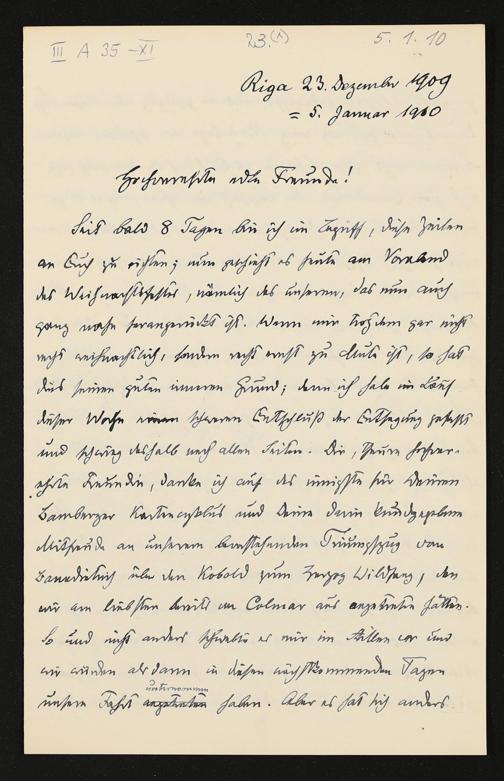 III A 35 - XI
23. (A)
5. 1. 10
Riga 23. Dezember 1909
= 5. Januar 1910
Hochverehrte edle Freunde!
Seit bald 8 Tagen bin ich im Begriff, diese Zeilen
an Euch zu richten; nun geschieht es heute am Vorabend
des Weihnachtsfestes, nämlich des unseren, das nun auch
ganz nahe herangerückt ist. Wenn mir trotzdem gar nicht
recht weihnachtlich, sondern recht ernst zu Mute ist, so hat
dies seinen guten inneren Grund; denn ich habe im Lauf
dieser Woche einen schweren Entschluß der Entsagung gefasst
und schwieg deshalb nach allen Seiten. Dir, theure hochver-
ehrte Freundin, danke ich auf das innigste für Deinen
Bamberger Kartencyklus und Deine darin kundgegebene
Mitfreude an unserem bevorstehenden Triumphzug von
Banadietrich über den Kobold zum Herzog Wildfang, den
wir am liebsten bereits von Colmar aus angetreten hätten.
So und nicht anders schwebte es mir im Stillen vor und
wir würden alsdann in diesen nächstkommenden Tagen
unternommen
unsere Fahrt angetreten haben. Aber es hat sich anders